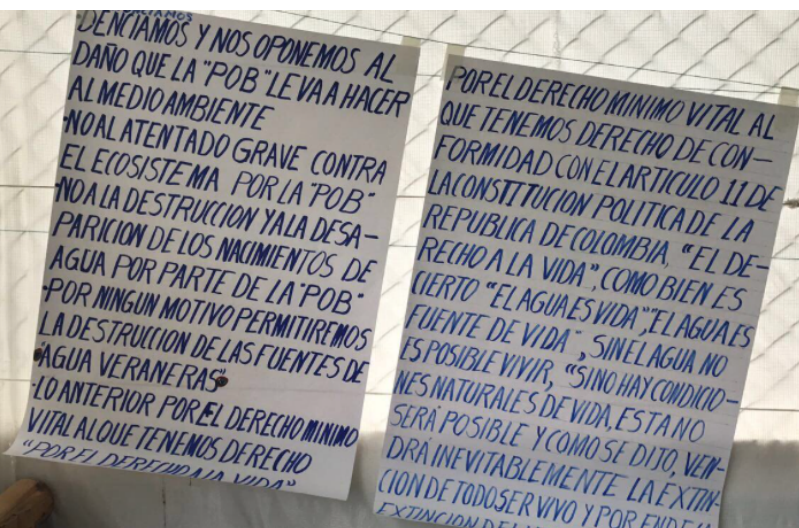 DENCIAMOS Y NOS OPONEMOS AL
DAÑO QUE LA "POB" LE VA A HACER
AL MEDIO AMBIENTE
-NO AL ATENTADO GRAVE CONTRA
EL ECOSISTEMA POR LA "POB"
-NO A LA DESTRUCCION Y A LA DESA-
PARICION DE LOS NACIMIENTOS DE
AGUA POR PARTE DE LA "POB"
-POR NINGUN MOTIVO PERMITIREMOS
LA DESTRUCCION DE LAS FUENTES DE
"AGUA VERANERAS"
-LO ANTERIOR POR EL DERECHO MINIMO
VITAL AL QUE TENEMOS DERECHO
"POR EL DERECHO A LA VIDA"
POR EL DERECHO MINIMO VITAL AL
QUE TENEMOS DERECHO DE CON-
FORMIDAD CON EL ARTICULO 11 DE
LA CONSTITUCION POLITICA DE LA
REPUBLICA DE COLOMBIA, "EL DE-
RECHO A LA VIDA", COMO BIEN ES
CIERTO "EL AGUA ES VIDA", "EL AGUA ES
FUENTE DE VIDA", SIN EL AGUA NO
ES POSIBLE VIVIR, "SI NO HAY CONDICIO-
NES NATURALES DE VIDA, ESTA NO
SERÁ POSIBLE Y COMO SE DIJO, VEN-
DRÁ INEVITABLEMENTE LA EXTIN-
CION DE TODO SER VIVO Y POR ENDE LA
EXTINCION DEL